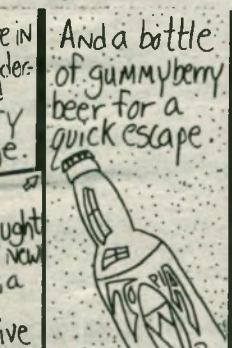 e in
der-
TY
e.
ught
New
a
ive
And a bottle
of gummyberry
beer for a
quick escape.